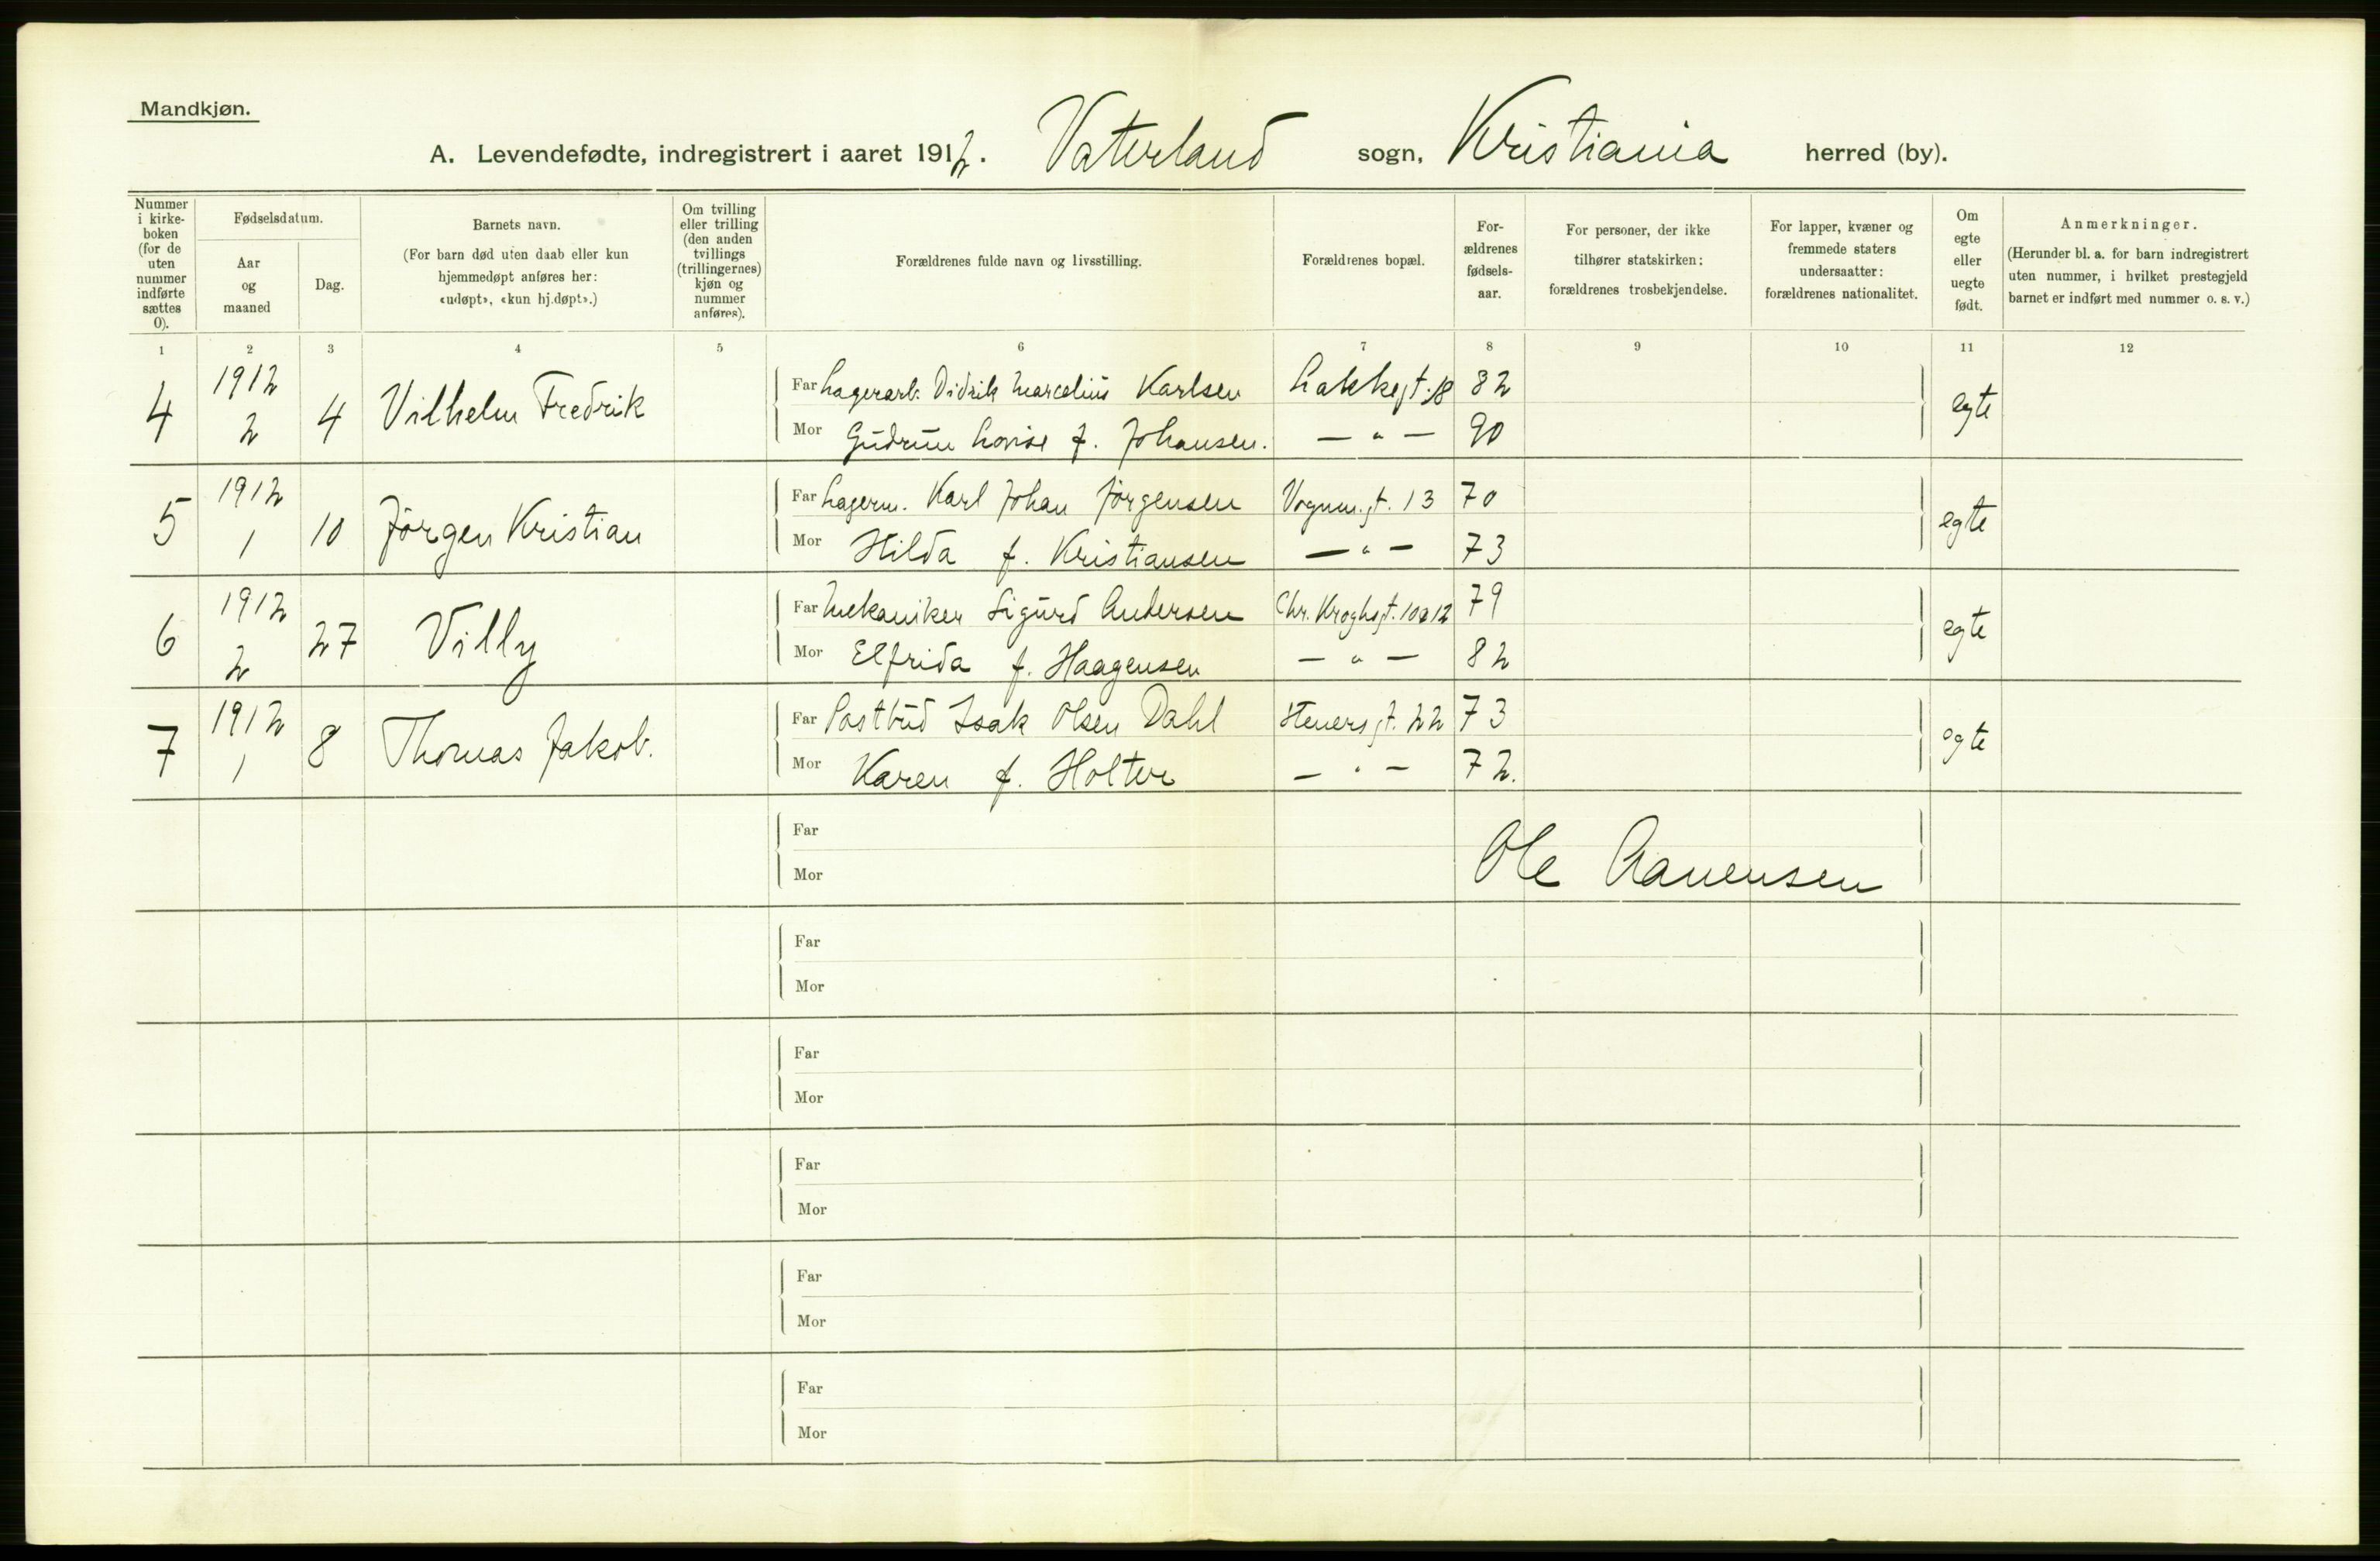 Mandkjøn.
A. Levendefødte, indregistrert i aaret 1912. Vaterland sogn, Kristiania herred (by).
Nummer i kirke-boken (for de uten nummer indførte sættes 0).
Fødselsdatum.
Aar og maaned
Dag.
Barnets navn.
(For barn død uten daab eller kun hjemmedøpt anføres her: «udøpt», «kun hj.døpt».)
Om tvilling eller trilling (den anden tvillings (trillingernes) kjøn og nummer anføres).
Forældrenes fulde navn og livsstilling.
Forældrenes bopæl.
For-ældrenes fødsels-aar.
For personer, der ikke tilhører statskirken: forældrenes trosbekjendelse.
For lapper, kvæner og fremmede staters undersaatter: forældrenes nationalitet.
Om egte eller uegte født.
Anmerkninger.
(Herunder bl. a. for barn indregistrert uten nummer, i hvilket prestegjeld barnet er indført med nummer o. s. v.)
1 2 3 4 5 6 7 8 9 10 11 12
4 1912 2 4 Vilhelm Fredrik Far Lagerarb. Didrik Marcelius Karlsen Lakkegt. 18 82 egte
Mor Gudrun Lovise f. Johansen. — " — 90
5 1912 1 10 Jörgen Kristian Far Lagerm. Karl Johan Jörgensen Vognm.gt. 13 70 egte
Mor Hilda f. Kristiansen — " — 73
6 1912 2 27 Villy Far Mekaniker Sigurd Andersen Chr. Kroghsgt. 10a 12 79 egte
Mor Elfrida f. Haagensen — " — 82
7 1912 1 8 Thomas Jakob. Far Postbud Isak Olsen Dahl Stenersgt. 22 73 egte
Mor Karen f. Holter — " — 72.
Far
Mor
Ole Aanensen
Far
Mor
Far
Mor
Far
Mor
Far
Mor
Far
Mor